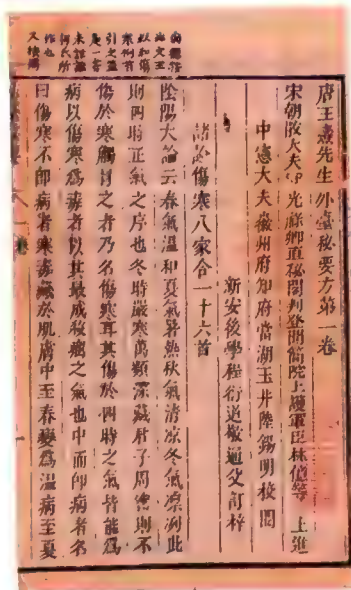 唐王燾先生外臺秘要方第一卷
宋朝散大夫守光祿卿直秘閣判登聞簡院上護軍臣林億等　上進
中憲大夫徽州府知府當湖玉井陸錫明校閱
新安後學程衍道敬通父訂梓
諸論傷寒八家合一十六首
陰陽大論云春氣溫和夏氣暑熱秋氣清凉冬氣凛冽此
則四時正氣之序也冬時嚴寒萬類深藏君子周密則不
傷於寒觸冒之者乃名傷寒耳其傷於四時之氣皆能爲
病以傷寒爲毒者以其最成殺癘之氣也中而即病者名
曰傷寒不即病者寒毒藏於肌膚中至春變爲溫病至夏
此文王
叔和傷
寒例首
引之
是一書
未詳誰
何氏所
作也
又按陽